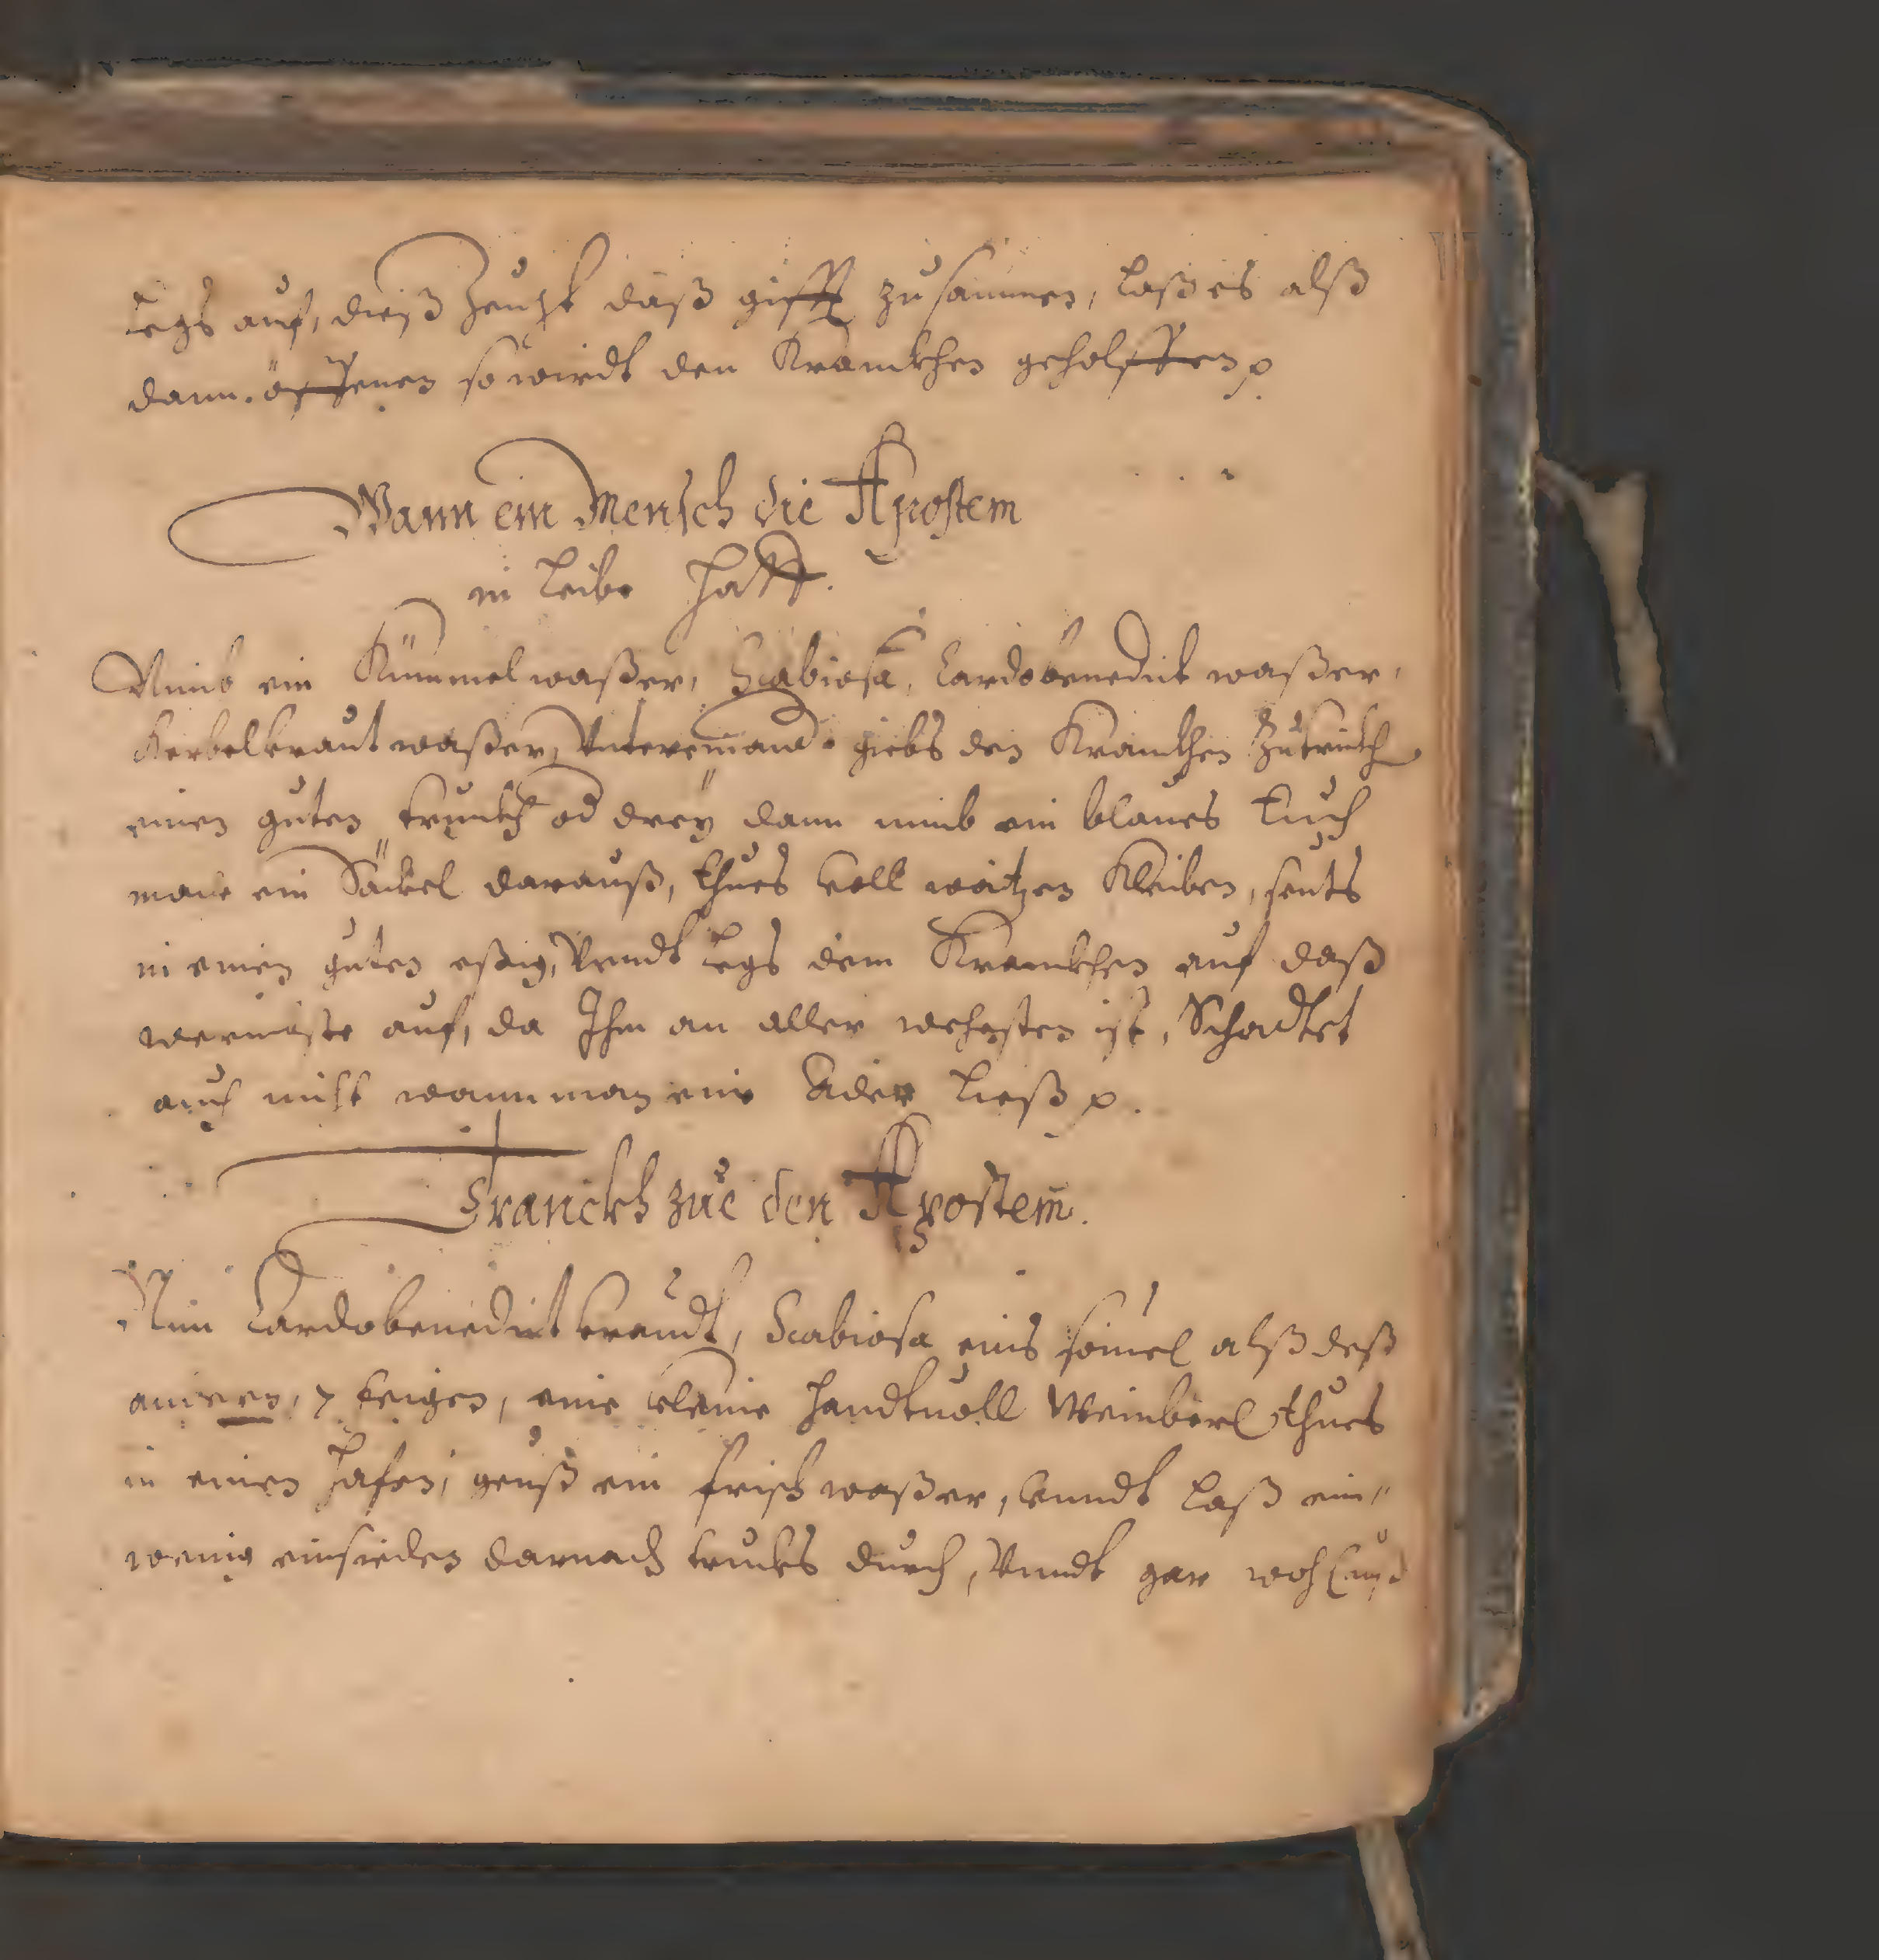 Legs auf, dieß Zeucht daß gifft zusammen, laß es alß
dann öffenen so wirdt den Kranckhen geholffen
Wann ein Mensch die Apostem
in Leibe hatt.
Nimb ein Kümmelwaßer, Scabiosa, Cardobenedict waßer,
Kerbelkraut waßer, Vntereinand, giebs den Kranckhen zu trinckh
einen guten trunckh od drey dann nimb ein blaues Tuch
mach ein Säckel darauß, thues voll waitzen Kleiben, seuts
in einen guten eßig, Vnndt Legs dem Kranckhen auf daß
wermiste auf, da Ihm an aller wehesten ist, Schadtet
auch nicht wann man eine Ader Ließ
Tranckh zue den Apostem.
Nim Cardobenedict krautt, Scabiosa eins souiel alß deß
anderen, 7 feigen, eine kleine handtuoll Weinberl thues
in einen Hafen, geuß ein frisch waßer, vnndt Laß ein
wenig einsieden darnach truckhs durch, Vnndt gar wohl